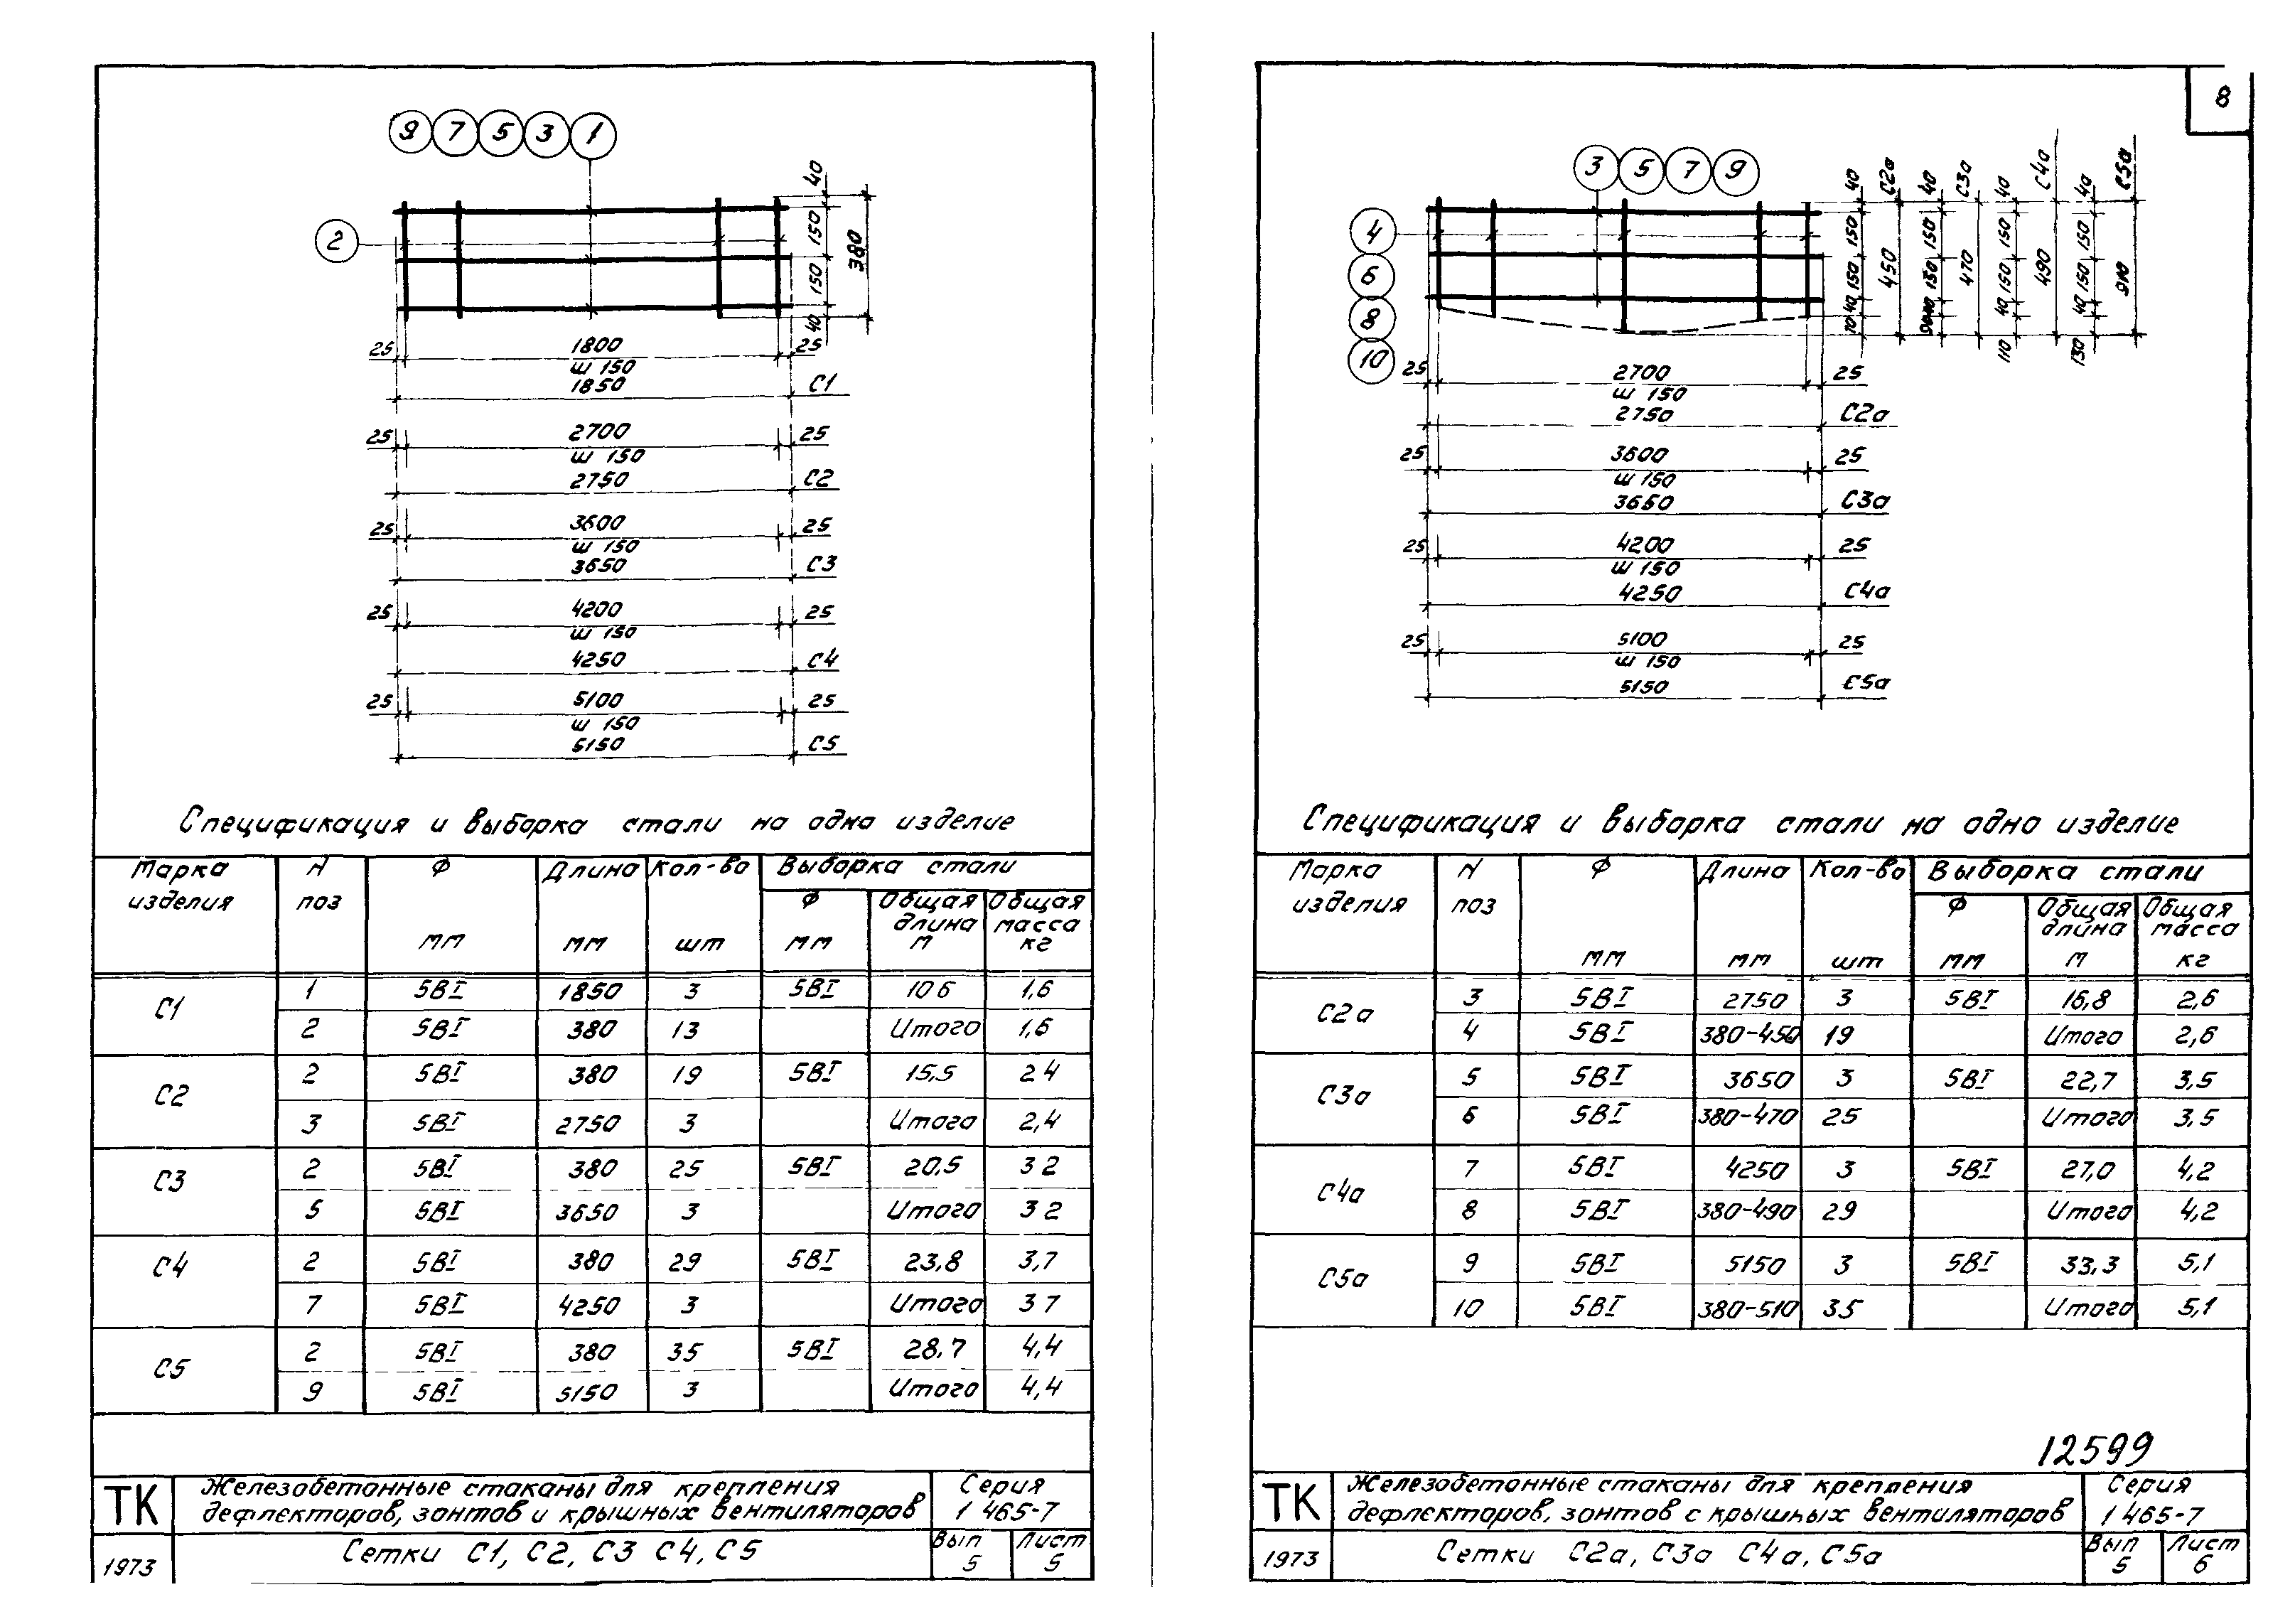 9 7 5 3 1
2
40
150
150
40
380
25 1800 25
ш 150
1850 С1
25 2700 25
ш 150
2750 С2
25 3600 25
ш 150
3650 С3
25 4200 25
ш 150
4250 С4
25 5100 25
ш 150
5150 С5
Спецификация и выборка стали на одно изделие
Марка изделия N поз Ф мм Длина мм Кол-во шт Выборка стали
Ф мм Общая длина м Общая масса кг
С1 1 5ВI 1850 3 5ВI 10 6 1,6
2 5ВI 380 13 Итого 1,6
С2 2 5ВI 380 19 5ВI 15,5 2 4
3 5ВI 2750 3 Итого 2,4
С3 2 5ВI 380 25 5ВI 20,5 3 2
5 5ВI 3650 3 Итого 3 2
С4 2 5ВI 380 29 5ВI 23,8 3,7
7 5ВI 4250 3 Итого 3 7
С5 2 5ВI 380 35 5ВI 28,7 4,4
9 5ВI 5150 3 Итого 4,4
ТК Железобетонные стаканы для крепления
дефлекторов, зонтов и крышных вентиляторов
Серия
1 465-7
1973 Сетки С1, С2, С3 С4, С5
Вып 5 Лист 5
8
3 5 7 9
4
6
8
10
40 150 150 40 70
С2а 450
40 150 150
С3а 470
40 150 150 40 110
С4а 490
40 150 150 40 130
С5а
25 2700 25
ш 150
2750 С2а
25 3600 25
ш 150
3650 С3а
25 4200 25
ш 150
4250 С4а
25 5100 25
ш 150
5150 С5а
Спецификация и выборка стали на одно изделие
Марка изделия N поз Ф мм Длина мм Кол-во шт Выборка стали
Ф мм Общая длина м Общая масса кг
С2а 3 5ВI 2750 3 5ВI 16,8 2,6
4 5ВI 380-450 19 Итого 2,6
С3а 5 5ВI 3650 3 5ВI 22,7 3,5
6 5ВI 380-470 25 Итого 3,5
С4а 7 5ВI 4250 3 5ВI 27,0 4,2
8 5ВI 380-490 29 Итого 4,2
С5а 9 5ВI 5150 3 5ВI 33,3 5,1
10 5ВI 380-510 35 Итого 5,1
12599
ТК Железобетонные стаканы для крепления
дефлекторов, зонтов с крышных вентиляторов
Серия
1 465-7
1973 Сетки С2а, С3а С4а, С5а
Вып 5 Лист 6